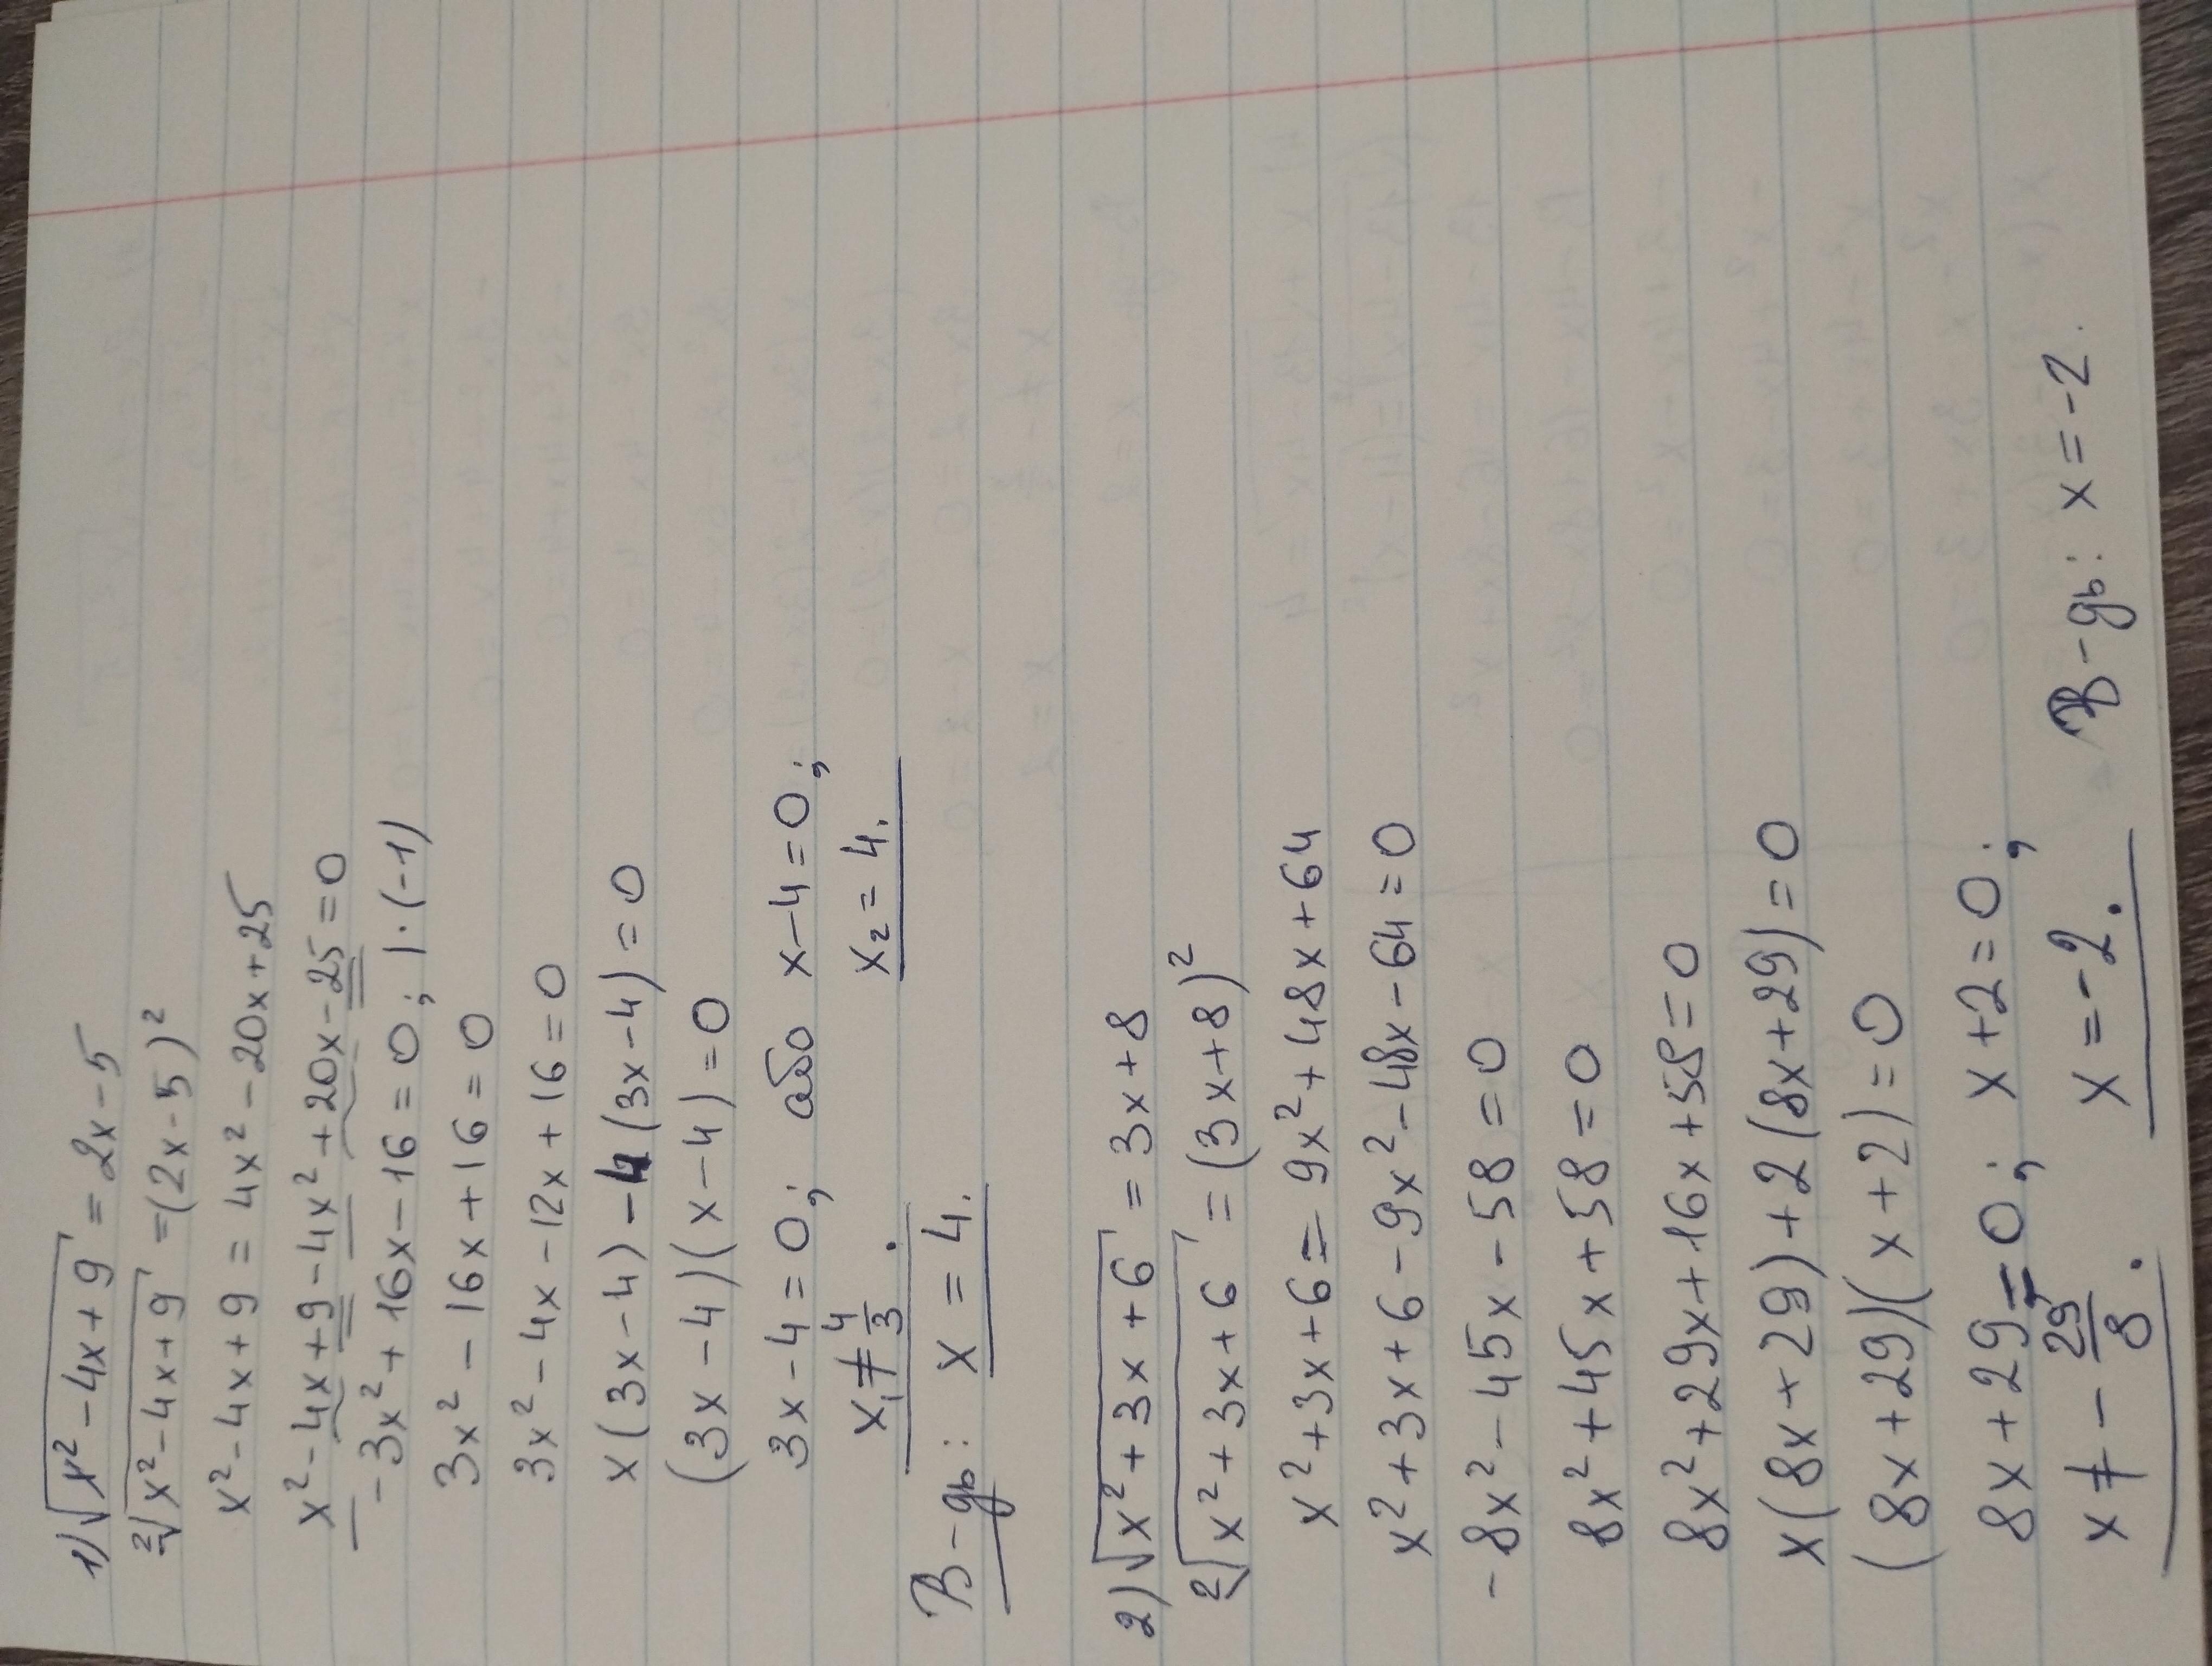 1) √x² - 4x + 9 = 2x - 5
²√x² - 4x + 9 = (2x - 5)²
x² - 4x + 9 = 4x² - 20x + 25
x² - 4x + 9 - 4x² + 20x - 25 = 0
-3x² + 16x - 16 = 0; | · (-1)
3x² - 16x + 16 = 0
3x² - 4x - 12x + 16 = 0
x(3x - 4) - 4(3x - 4) = 0
(3x - 4)(x - 4) = 0
3x - 4 = 0; або x - 4 = 0;
x₁ ≠ 4/3. x₂ = 4.
В-дь: x = 4.
2) √x² + 3x + 6 = 3x + 8
²√x² + 3x + 6 = (3x + 8)²
x² + 3x + 6 = 9x² + 48x + 64
x² + 3x + 6 - 9x² - 48x - 64 = 0
-8x² - 45x - 58 = 0
8x² + 45x + 58 = 0
8x² + 29x + 16x + 58 = 0
x(8x + 29) + 2(8x + 29) = 0
(8x + 29)(x + 2) = 0
8x + 29 = 0; x + 2 = 0;
x ≠ - 29/8. x = -2. В-дь: x = -2.